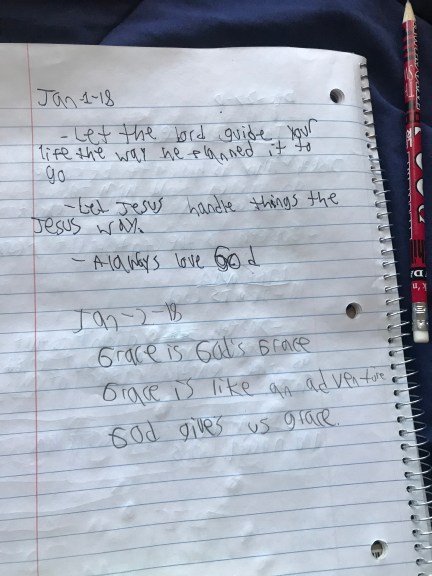 Jan 1-18
- Let the lord guide your
life the way he planned it to
go
- Let Jesus handle things the
Jesus way.
- Alaways love God
Jan-2-18
Grace is God's Grace
Grace is like an adventure
God gives us grace.